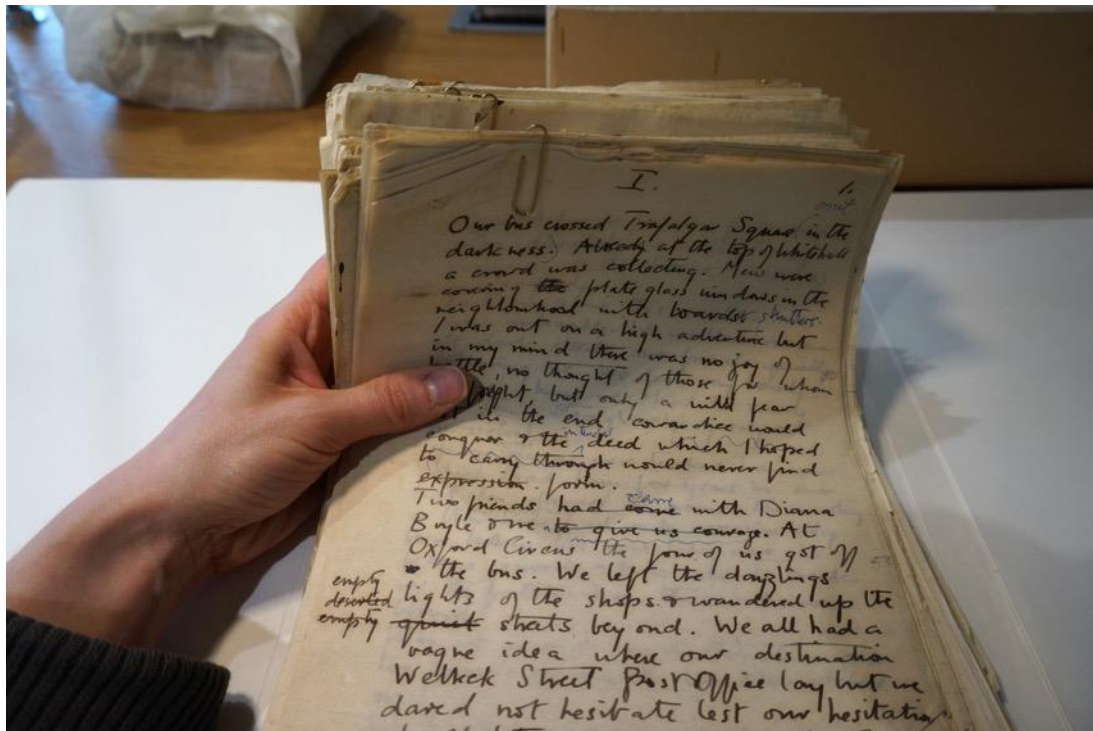 I.
1.
omit
Our bus crossed Trafalgar Square in the
darkness. Already at the top of Whitehall
a crowd was collecting. Men were
covering the plate glass windows in the
neighbourhood with boards shutters.
I was out on a high adventure but
in my mind there was no joy of
battle, no thought of those for whom
fought, but only a wild fear
in the end cowardice would
conquer & the deed which I hoped
to carry through would never find
expression form.
came
Two friends had come with Diana
Boyle & me to give us courage. At
Oxford Circus the four of us got off
the bus. We left the dazzlings
empty
deserted lights of the shops & wandered up the
empty quiet streets beyond. We all had a
vague idea where our destination
Welbeck Street Post Office lay but we
dared not hesitate lest our hesitation